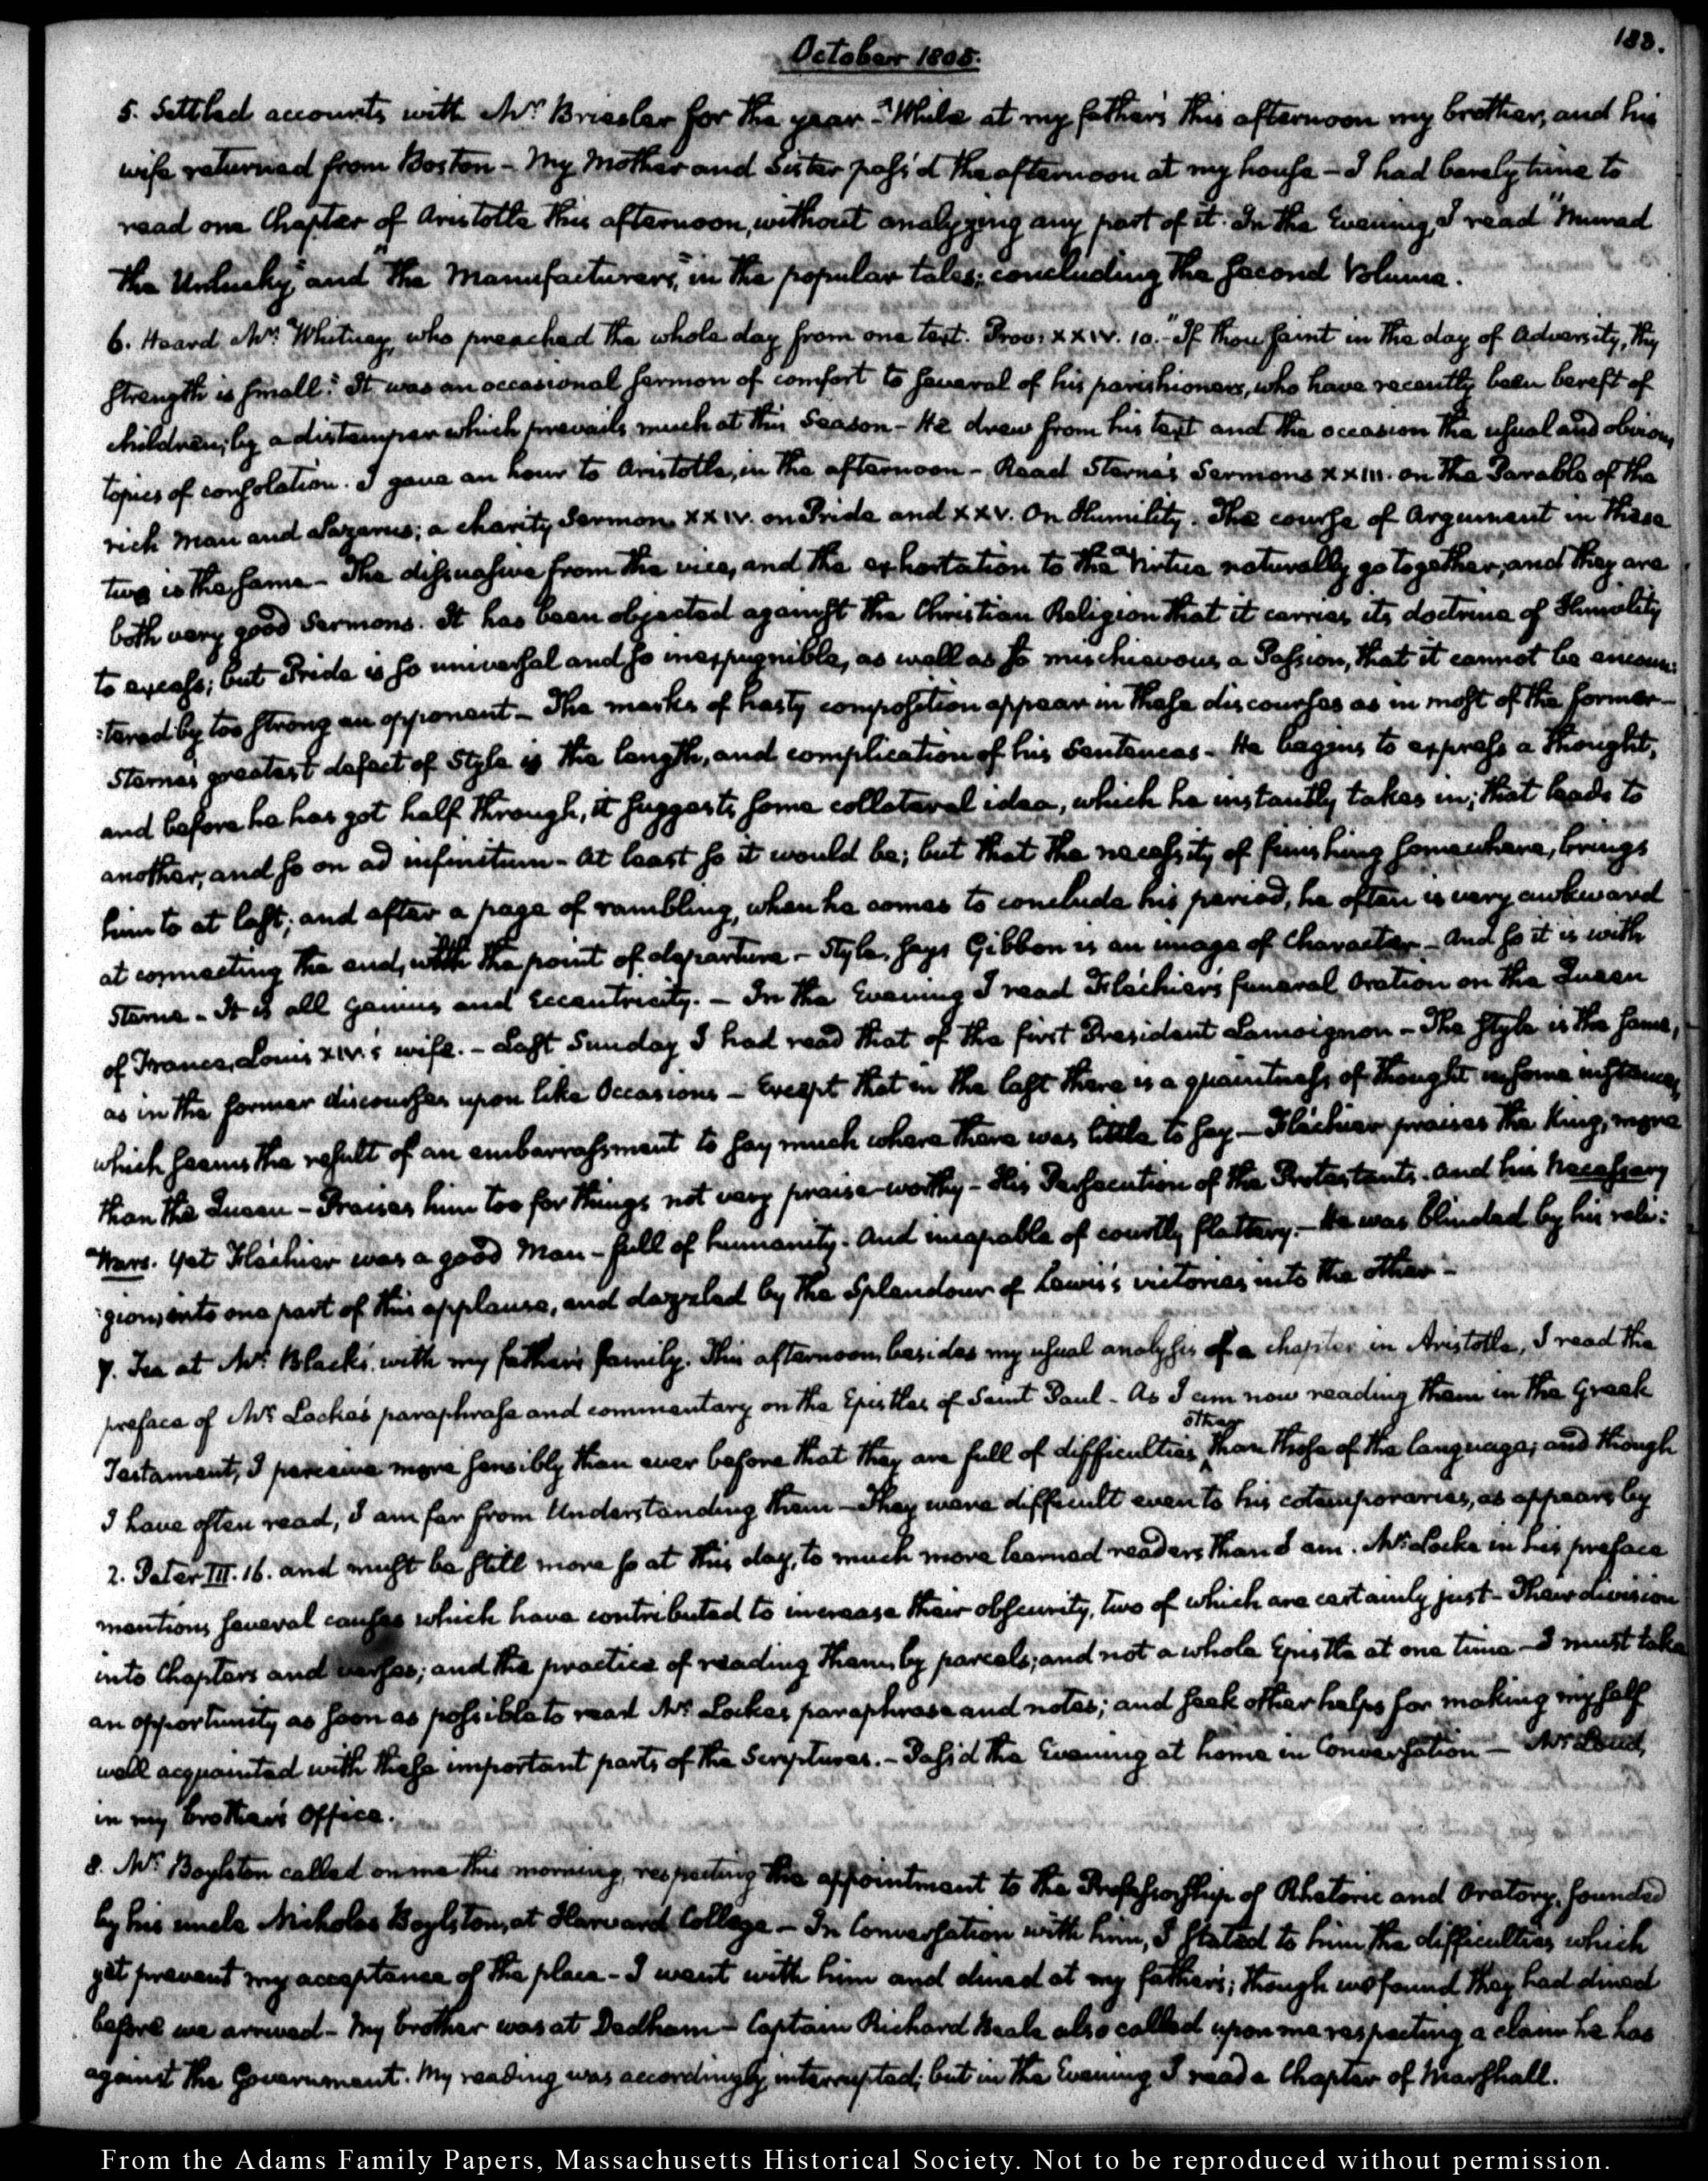 183.
October 1805.
5. Settled accounts with Mr. Briesler for the year - While at my father's this afternoon my brother, and his
wife returned from Boston - My Mother and Sister pass'd the afternoon at my house - I had barely time to
read one Chapter of Aristotle this afternoon, without analyzing any part of it. In the Evening, I read "Murad
the Unlucky," and "the Manufacturers," in the popular tales; concluding the second Volume.
6. Heard Mr. Whitney, who preached the whole day from one text. Prov: XXIV. 10. "If thou faint in the day of Adversity, thy
strength is small." It was an occasional sermon of comfort to several of his parishioners, who have recently been bereft of
children, by a distemper which prevails much at this Season - He drew from his text and the occasion the usual and obvious
topics of consolation. I gave an hour to Aristotle, in the afternoon - Read Sterne's Sermons XXIII. on the Parable of the
rich Man and Lazarus; a charity Sermon. XXIV. on Pride and XXV. On Humility. The course of Argument in these
two is the same - The dissuasive from the vice, and the exhortation to the Virtue naturally go together, and they are
both very good Sermons. It has been objected against the Christian Religion that it carries its doctrine of Humility
to excess; but Pride is so universal and so inexpugnible, as well as so mischievous a Passion, that it cannot be encoun:
:tered by too strong an opponent - The marks of hasty composition appear in these discourses as in most of the former -
Sterne's greatest defect of Style is the length, and complication of his Sentences - He begins to express a thought,
and before he has got half through, it suggests some collateral idea, which he instantly takes in; that leads to
another, and so on ad infinitum - At least so it would be; but that the necessity of finishing somewhere, brings
him to at last; and after a page of rambling, when he comes to conclude his period, he often is very awkward
at connecting the end, with the point of departure - Style, says Gibbon is an image of Character - And so it is with
Sterne - It is all genius and Eccentricity. - In the Evening I read Fléchier's funeral Oration on the Queen
of France, Louis XIV.'s wife. - Last Sunday I had read that of the first President Lamoignon - The style is the same,
as in the former discourses upon like Occasions - Except that in the last there is a quaintness of thought in some instances,
which seems the result of an embarrassment to say much where there was little to say - Fléchier praises the King, more
than the Queen - Praises him too for things not very praise-worthy - His Persecution of the Protestants. and his necessary
Wars. Yet Fléchier was a good Man - full of humanity. And incapable of courtly flattery. - He was blinded by his reli:
:gion, into one part of this applause, and dazzled by the Splendour of Lewis's victories into the other -
7. Tea at Mr. Black's, with my father's family. This afternoon, besides my usual analysis of a chapter in Aristotle, I read the
preface of Mr. Locke's paraphrase and commentary on the Epistles of Saint Paul - As I am now reading them in the Greek
Testament, I perceive more sensibly than ever before that they are full of difficulties other than those of the language; and though
I have often read, I am far from Understanding them - They were difficult even to his cotemporaries, as appears by
2. Peter III. 16. and must be still more so at this day, to much more learned readers than I am. Mr. Locke in his preface
mentions several causes which have contributed to increase their obscurity, two of which are certainly just - Their division
into Chapters and verses; and the practice of reading them, by parcels, and not a whole Epistle at one time - I must take
an opportunity as soon as possible to read Mr. Locke's paraphrase and notes; and seek other helps for making myself
well acquainted with these important parts of the Scriptures. - Pass'd the Evening at home in Conversation - Mr. Loud,
in my brother's Office.
8. Mr. Boylston called on me this morning, respecting the appointment to the Professorship of Rhetoric and Oratory, founded
by his uncle Nicholas Boylston, at Harvard College - In Conversation with him, I stated to him the difficulties which
yet prevent my acceptance of the place - I went with him and dined at my father's; though we found they had dined
before we arrived - My brother was at Dedham - Captain Richard Beale also called upon me respecting a claim he has
against the Government. My reading was accordingly interrupted; but in the Evening I read a Chapter of Marshall.
From the Adams Family Papers, Massachusetts Historical Society. Not to be reproduced without permission.